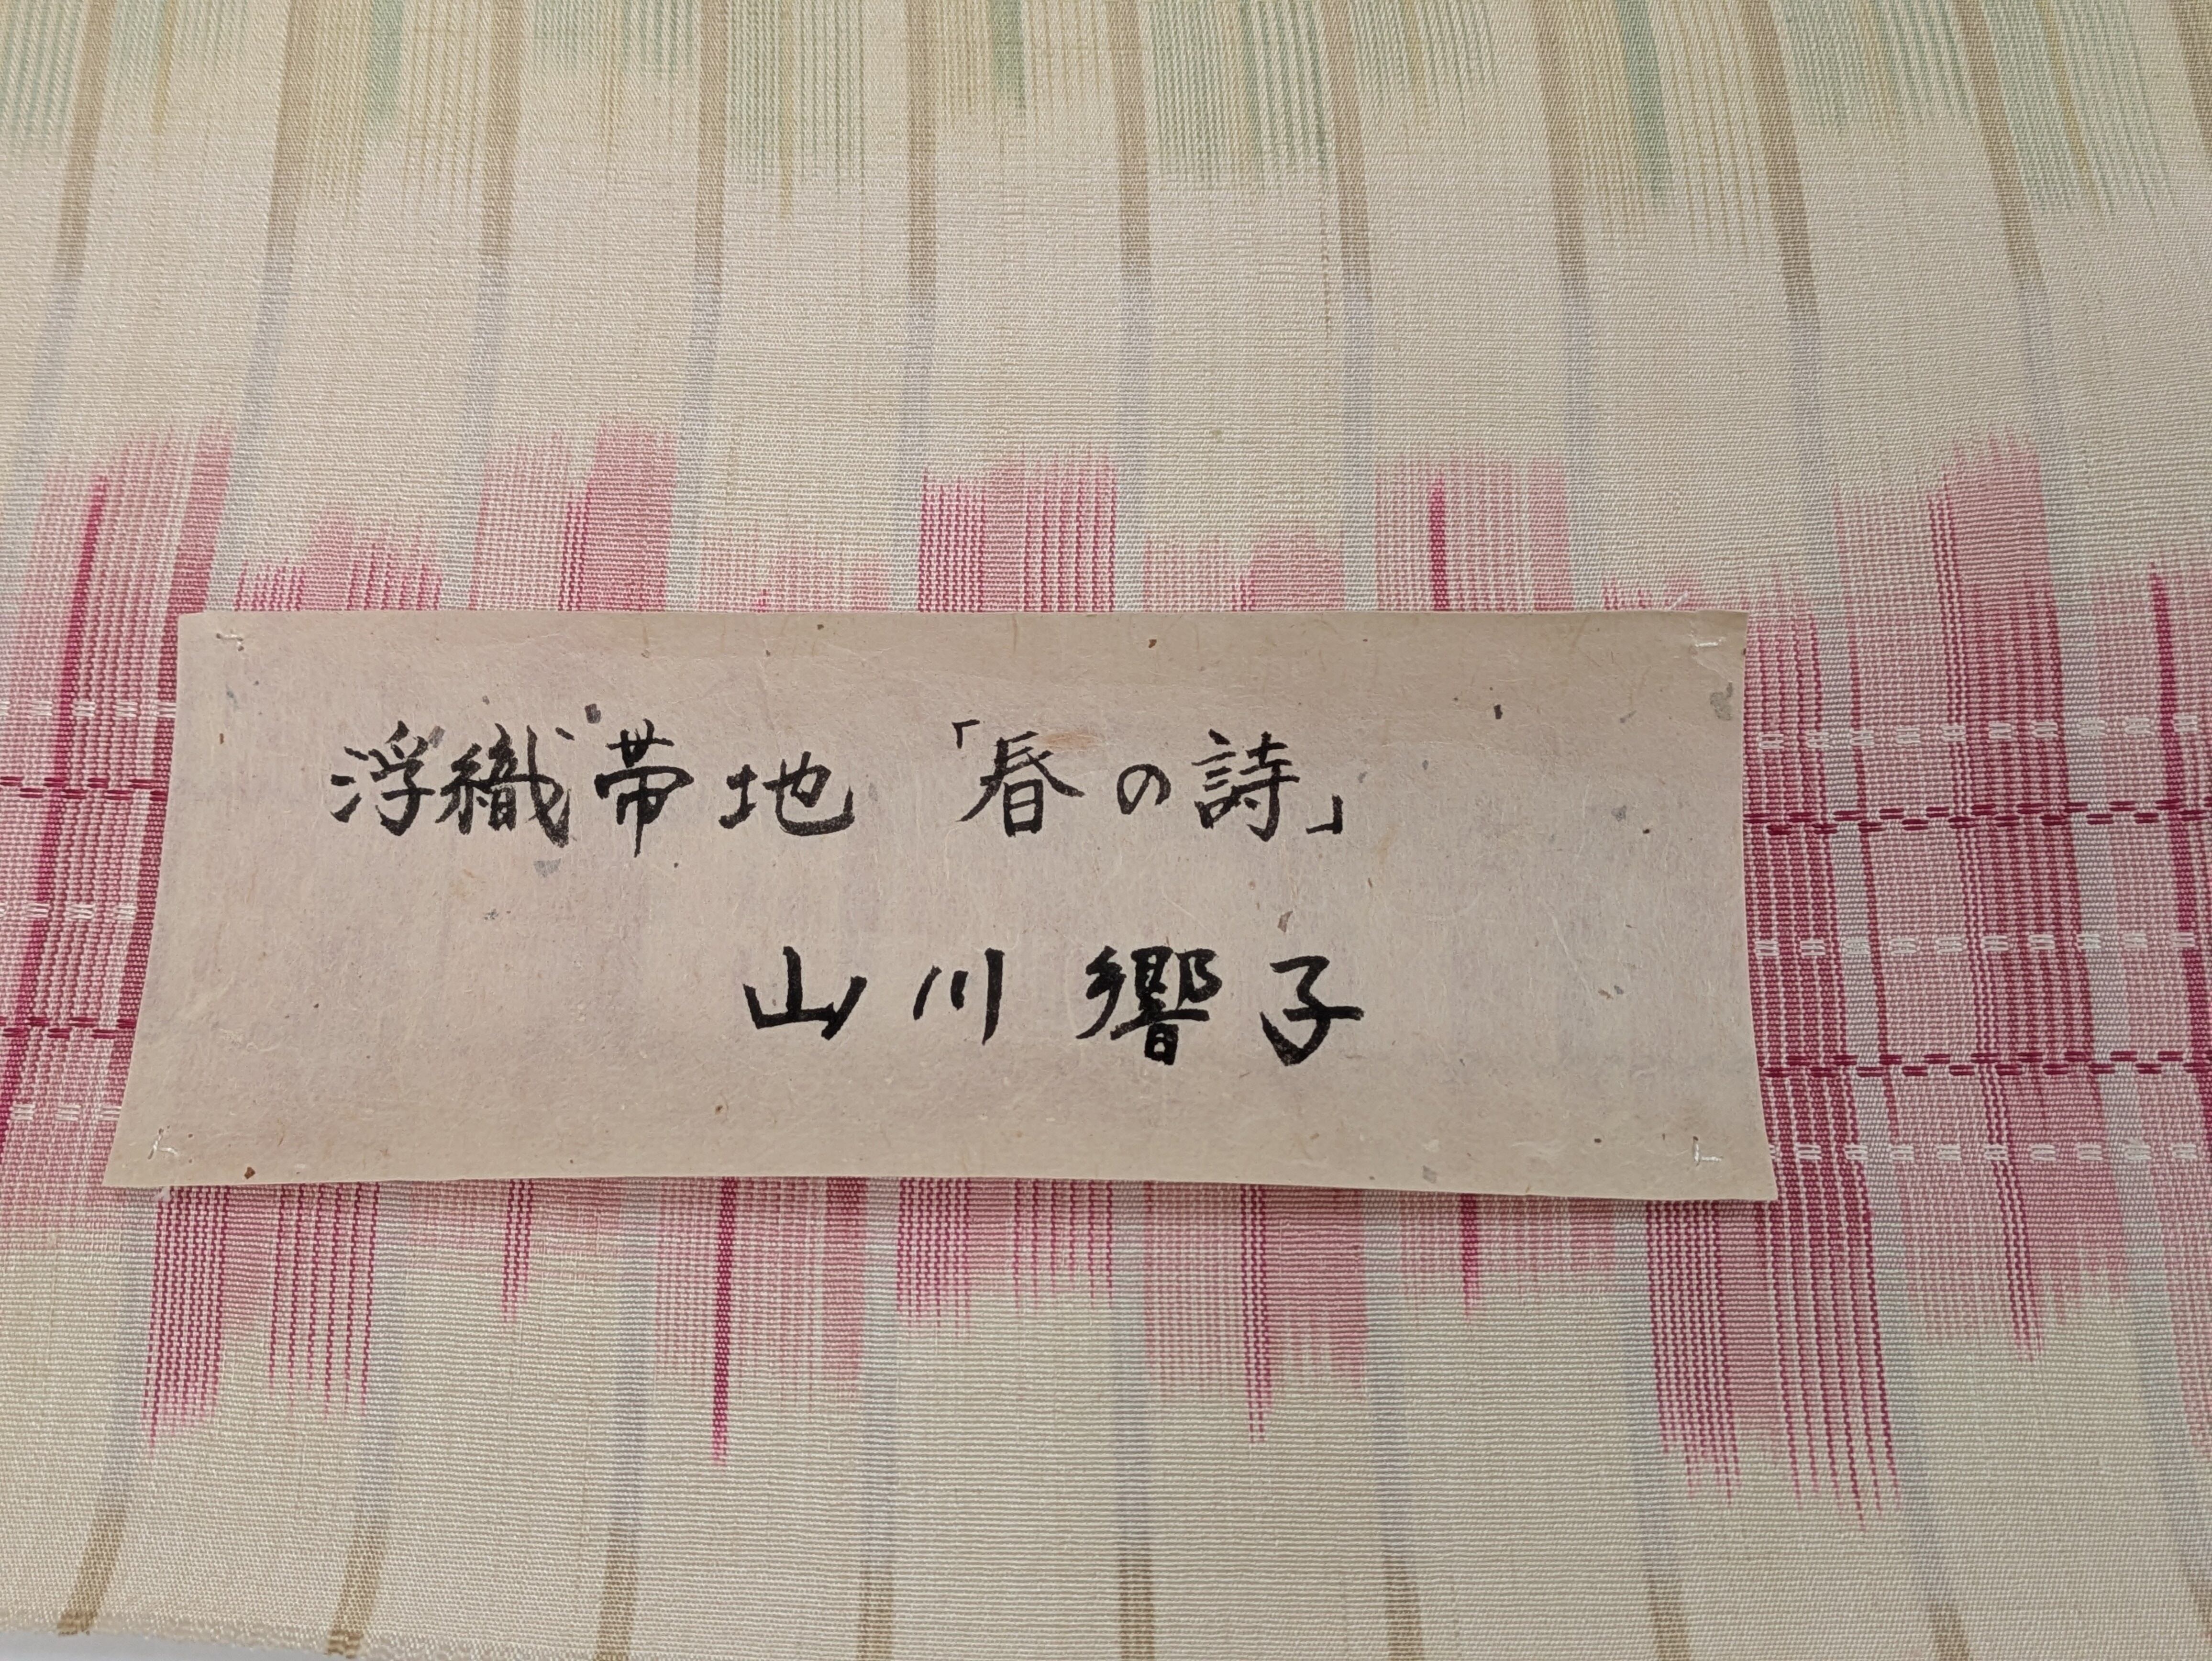 浮織帯地「春の詩」
山川響子